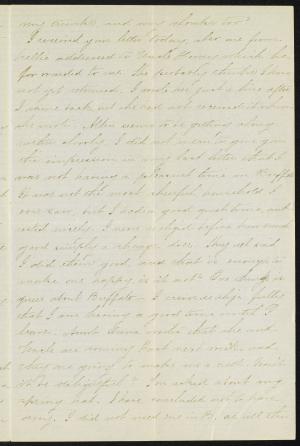 my trunks and my           too?
I received your letter today, also one from
Nellie addressed to Uncle Harvey which he
forwarded to me. She probably thinks I have
not yet returned. I wrote her just a line after
I came back but she had not received it when
she wrote. Allie seems to be getting along
rather slowly. I did not mean to give you
the impression in my last letter that I
was not having a pleasant time in Buffalo
It was not the most cheerful household I
ever saw, but I had a good quiet time, and
rested nicely. I never            before how much
good simply a change does. They all said
I did them good and that is enough to
make one happy is it not? One thing is
queer about Buffalo - I never realize fully
that I am having a good time until I
leave. Aunt            writes that she and
Uncle are coming East next month and
they are going to make us a visit. Won't
it be delightful? You asked about my
spring hat. I have concluded not to have
any. I did not need one in B. as all the